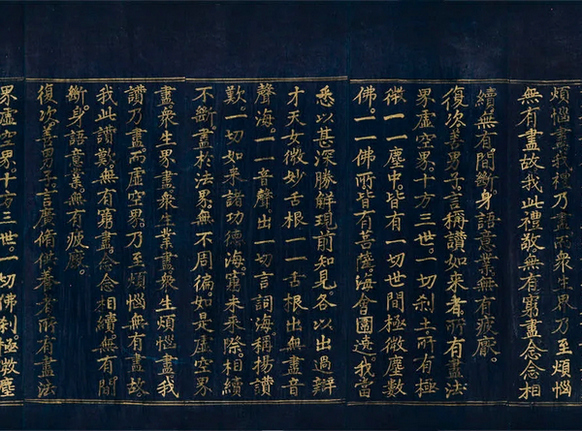 煩惱盡我禮乃盡而衆生界乃至煩惱
無有盡故我此禮敬無有窮盡念念相
續無有間斷。身語意業無有疲厭。
復次善男子。言稱讃如來者。所有盡法
界虛空界。十方三世。一切刹土所有極
微。一一塵中。皆有一切世間極微塵數
佛。一一佛所。皆有菩薩海會圍遶。我當
悉以甚深勝解現前知見。各以出過辯
才天女微妙舌根。一一舌根出無盡音
聲海。一一音聲。出一切言詞海。稱揚讃
歎。一切如來諸功德海。窮未來際。相續
不斷。盡於法界。無不周徧。如是虛空界
盡。衆生界盡。衆生業盡。衆生煩惱盡。我
讃乃盡。而虛空界。乃至煩惱。無有盡故。
我此讃歎無有窮盡。念念相續。無有間
斷。身語意業無有疲厭。
復次善男子。言廣脩供養者。所有盡法
界虛空界。十方三世。一切佛刹。極微塵